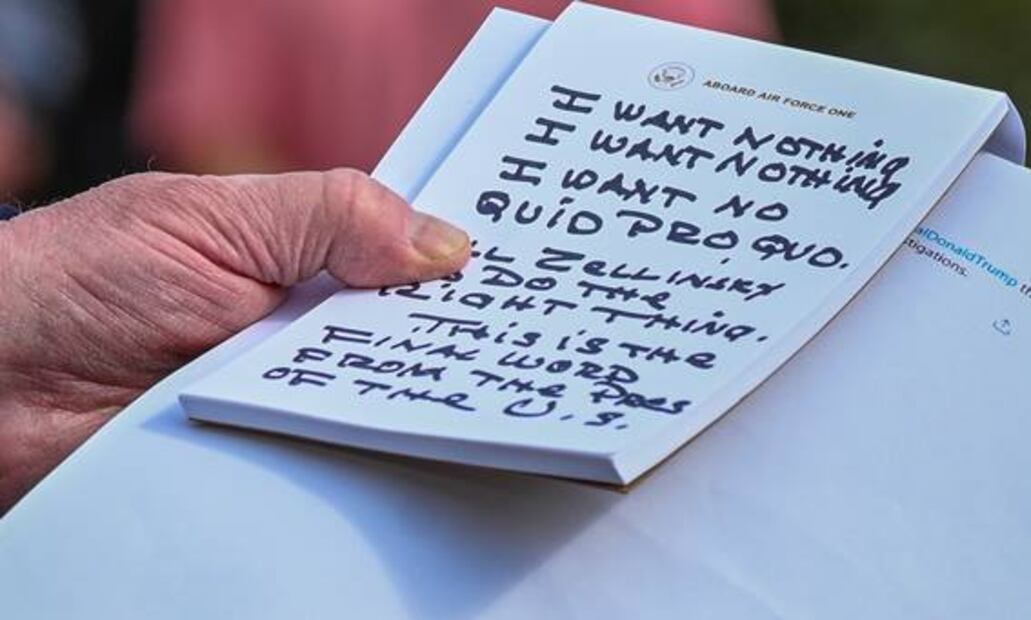 ABOARD AIR FORCE ONE
I WANT NOTHING
I WANT NOTHING
I WANT NO
QUID PRO QUO.
L ZELLINSKY
DO THE
RIGHT THING.
THIS IS THE
FINAL WORD
FROM THE PRES
OF THE U.S.
alDonaldTrump th
tigations.